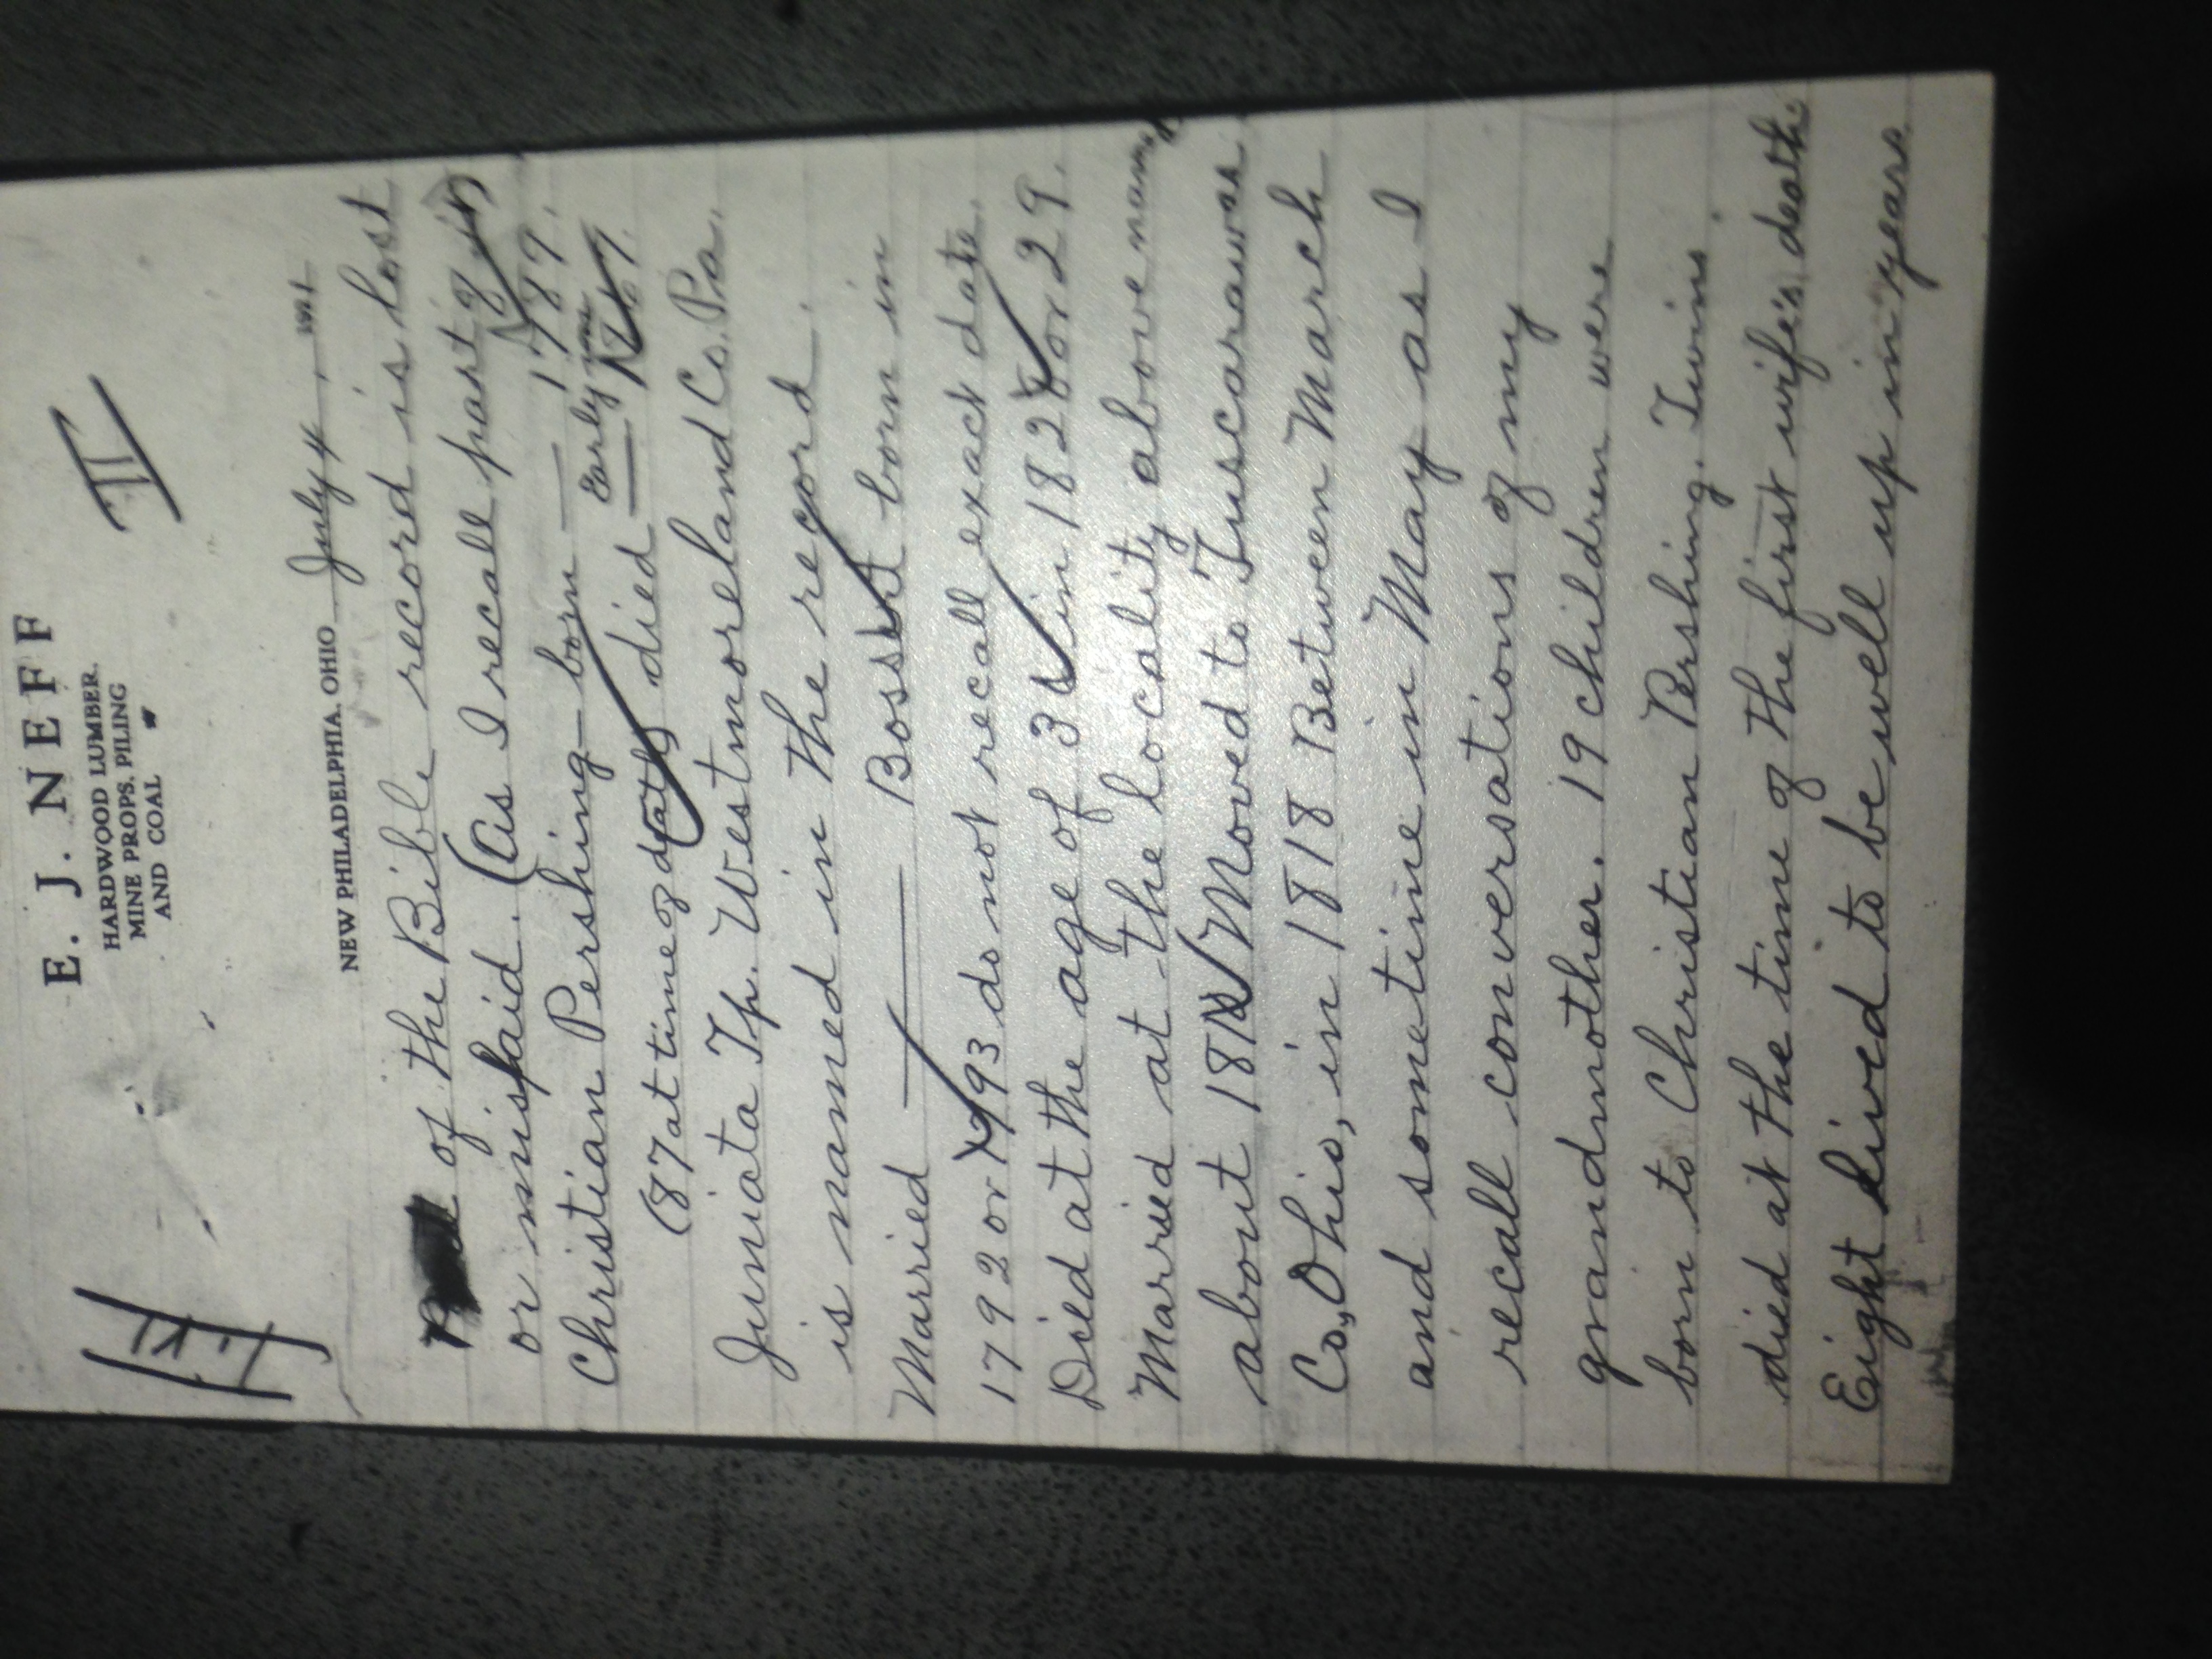 III
II
E. J. NEFF
HARDWOOD LUMBER.
MINE PROPS. PILING
AND COAL
NEW PHILADELPHIA, OHIO July 4, 191
of the Bible record is lost
or mispaid. (As I recall part of it)
Christian Pershing — born — 1789.
Early in
(87 at time of death) died — 1867.
Juniata Tp. Westmoreland Co. Pa.
is named in the record.
Married — Bossert born in
1792 or 1793 do not recall exact date.
Died at the age of 36 in 1828 or 29.
Married at the locality above named
about 181 Moved to Tuscarawas
Co., Ohio, in 1818 Between March
and sometime in May as I
recall conversations of my
grandmother. 19 children were
born to Christian Pershing. Twins
died at the time of the first wife's death.
Eight lived to be well up in years.